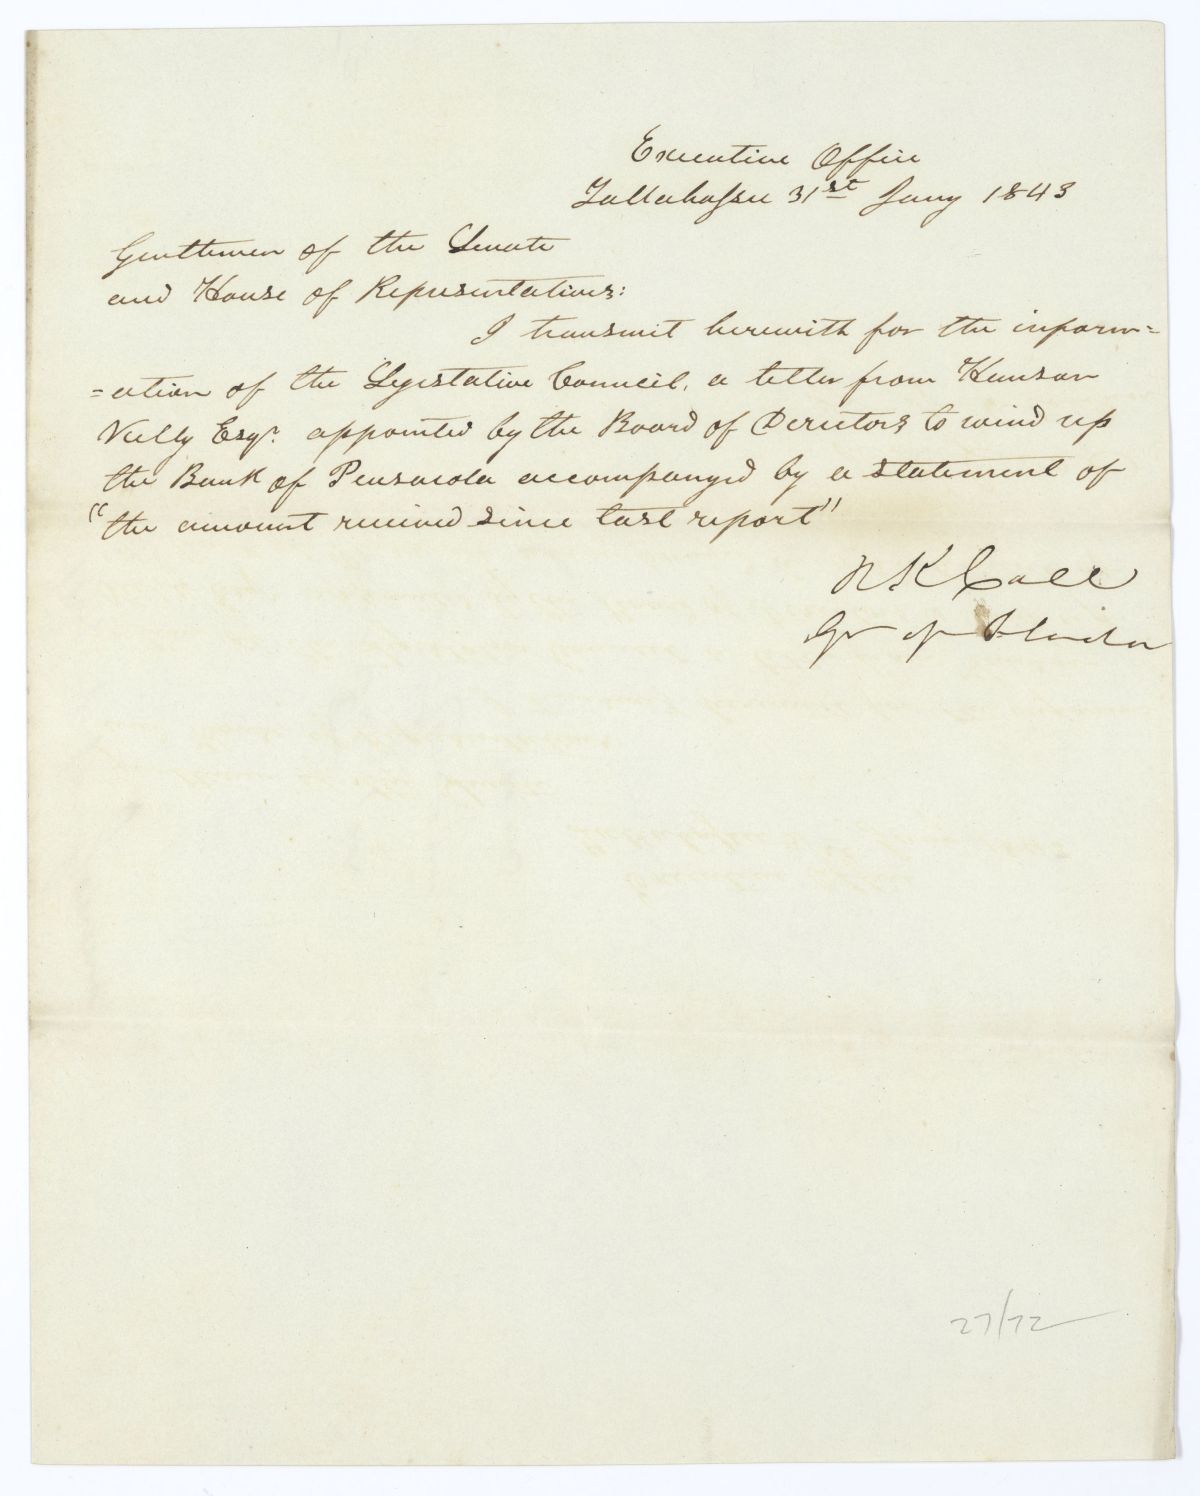 Executive Office
Tallahassee 31st Jany 1843
Gentlemen of the Senate
and House of Representatives:
I transmit herewith for the inform=
=ation of the Legislative Council, a letter from Hanson
Kelly Esqr. appointed by the Board of Directors to wind up
the Bank of Pensacola accompanyed by a statement of
"the amount received since last report"
R K Call
Gov of Florida
27/72